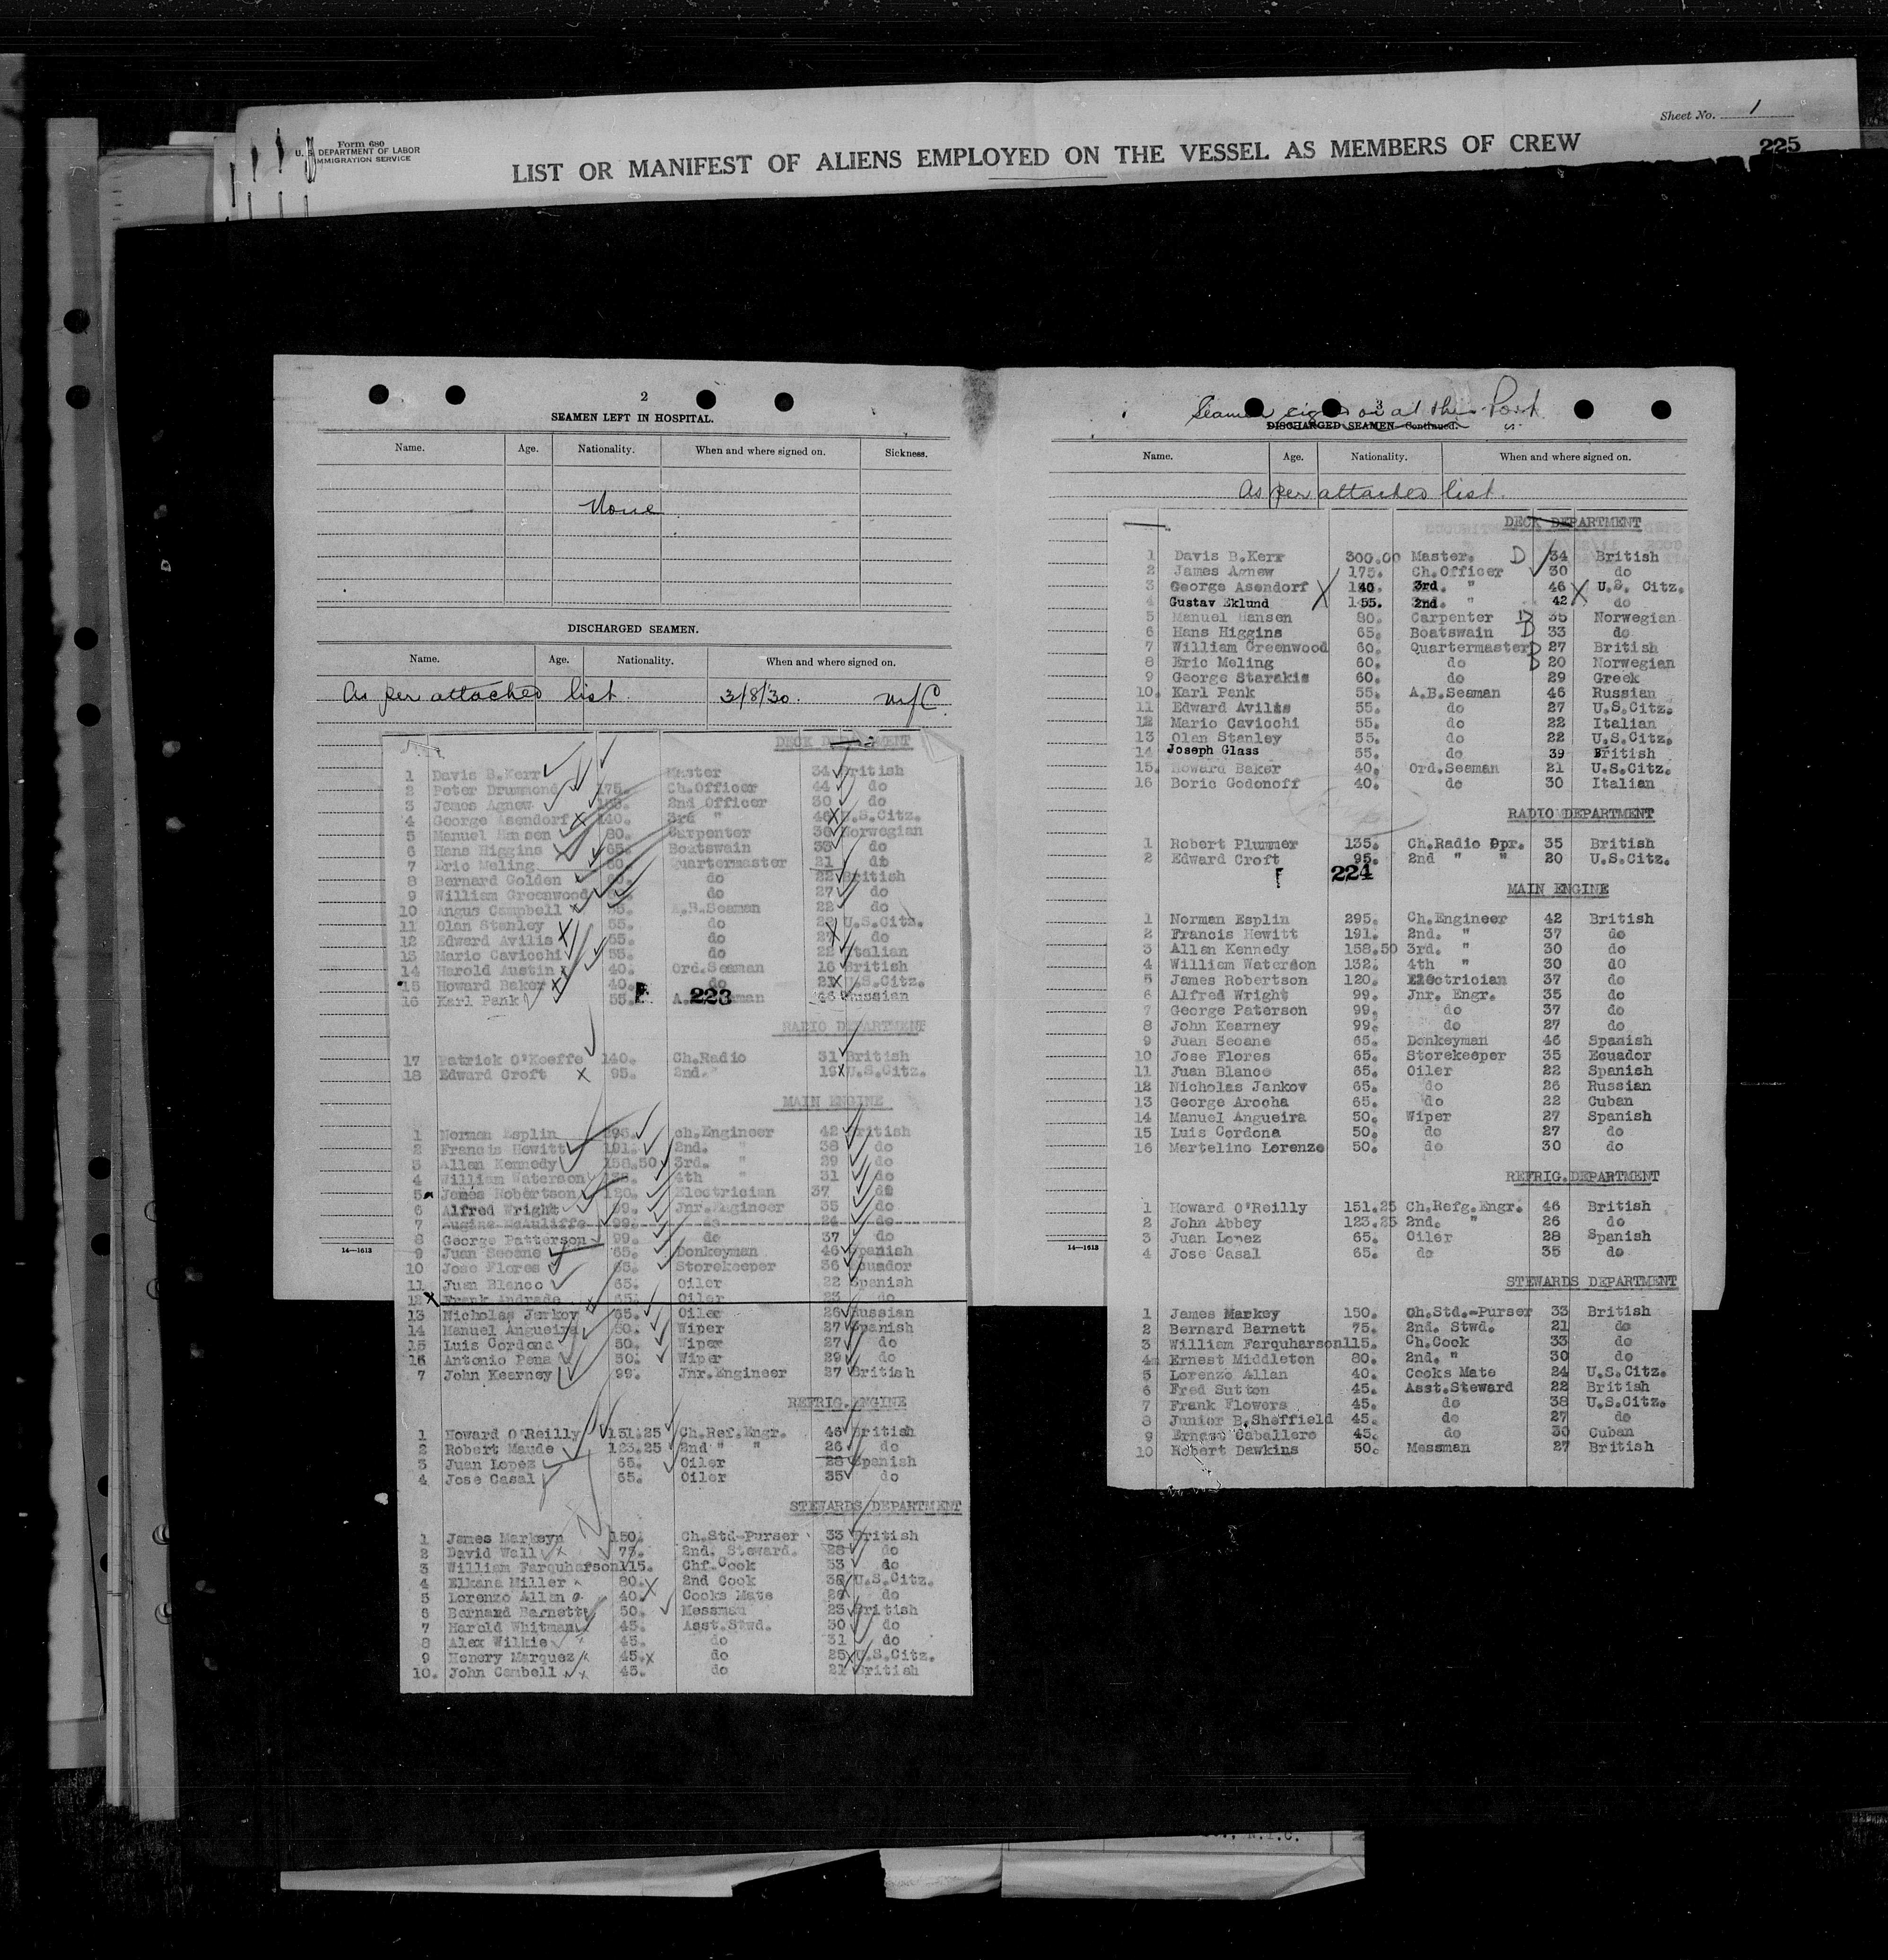 Form 680
U. S. DEPARTMENT OF LABOR
IMMIGRATION SERVICE
Sheet No. 1
LIST OR MANIFEST OF ALIENS EMPLOYED ON THE VESSEL AS MEMBERS OF CREW
225
2
SEAMEN LEFT IN HOSPITAL.
Name. Age. Nationality. When and where signed on. Sickness.
None
DISCHARGED SEAMEN.
Name. Age. Nationality. When and where signed on.
As per attached list. 3/8/30.
DECK DEPARTMENT
1 Davis B.Kerr Master 34 British
2 Peter Drummond 175. Ch.Officer 44 do
3 James Agnew 2nd Officer 30 do
4 George Asendorf 140. 3rd " 46 U.S.Citz.
5 Manuel Hansen 80. Carpenter 36 Norwegian
6 Hans Higgins 65. Boatswain 33 do
7 Eric Meling 60. Quartermaster 21 do
8 Bernard Golden 60. do 22 British
9 William Greenwood do 27 do
10 Angus Campbell 55. A.B.Seaman 22 do
11 Olan Stanley 55. do 22 U.S.Citz.
12 Edward Avilis 55. do 27 do
13 Mario Cavicchi 55. do 22 Italian
14 Harold Austin 40. Ord.Seaman 16 British
15 Howard Baker 40. do 21 U.S.Citz.
16 Karl Pank 55. 46 Russian
223
RADIO DEPARTMENT
17 Patrick O'Keeffe 140. Ch.Radio 31 British
18 Edward Croft 95. 2nd." 19 U.S.Citz.
MAIN ENGINE
1 Norman Esplin 295. Ch.Engineer 42 British
2 Francis Hewitt 191. 2nd. " 38 do
3 Allan Kennedy 158.50 3rd. " 29 do
4 William Waterson 4th 31 do
5 James Robertson 120. Electrician 37 do
6 Alfred Wright 99. Jnr.Engineer 35 do
7 Eugine McAuliffe 99. do 24 do
8 George Patterson 99. do 37 do
9 Juan Seoane 65. Donkeyman 46 Spanish
10 Jose Flores 65. Storekeeper 36 Ecuador
11 Juan Blanco 65. Oiler 22 Spanish
12 Frank Andrade 65. Oiler 23 do
13 Nicholas Jerkov 65. Oiler 26 Russian
14 Manuel Angueira 50. Wiper 27 Spanish
15 Luis Cordona 50. Wiper 27 do
16 Antonio Pena 50. Wiper 29 do
7 John Kearney 99. Jnr.Engineer 27 British
REFRIG.ENGINE
1 Howard O'Reilly 151.25 Ch.Ref.Engr. 46 British
2 Robert Maude 123.25 2nd " " 26 do
3 Juan Lopez 65. Oiler 28 Spanish
4 Jose Casal 65. Oiler 35 do
STEWARDS DEPARTMENT
1 James Markeyn 150. Ch.Std-Purser 33 British
2 David Wall 75. 2nd. Steward. 28 do
3 William Farquharson 115. Chf.Cook 33 do
4 Elkana Miller 80. 2nd Cook 38 U.S.Citz.
5 Lorenzo Allan 40. Cooks Mate do
6 Bernard Barnett 50. Messman 23 British
7 Harold Whitman 45. Asst.Stwd. 30 do
8 Alex Wilkie 45. do 31 do
9 Henery Marquez 45. do 25 U.S.Citz.
10. John Cambell 45. do 21 British
14—1613
Seamen signed on at this Port
3
DISCHARGED SEAMEN—Continued.
Name. Age. Nationality. When and where signed on.
As per attached list.
DECK DEPARTMENT
1 Davis B.Kerr 300.00 Master. D 34 British
2 James Agnew 175. Ch.Officer 30 do
3 George Asendorf 140 3rd. " 46 U.S. Citz.
4 Gustav Eklund 155. 2nd. " 42 do
5 Manuel Hansen 80. Carpenter D 35 Norwegian
6 Hans Higgins 65. Boatswain D 33 do
7 William Greenwood 60. Quartermaster D 27 British
8 Eric Meling 60. do D 20 Norwegian
9 George Starakis 60. do 29 Greek
10. Karl Pank 55. A.B.Seaman 46 Russian
11 Edward Avilis 55. do 27 U.S.Citz.
12 Mario Cavicchi 55. do 22 Italian
13 Olan Stanley 55. do 22 U.S.Citz.
14 Joseph Glass 55. do 39 British
15. Howard Baker 40. Ord.Seaman 21 U.S.Citz.
16 Boric Godonoff 40. do 30 Italian
RADIO DEPARTMENT
1 Robert Plummer 135. Ch.Radio Opr. 35 British
2 Edward Croft 95. 2nd " " 20 U.S.Citz.
224
MAIN ENGINE
1 Norman Esplin 295. Ch.Engineer 42 British
2 Francis Hewitt 191. 2nd. " 37 do
3 Allan Kennedy 158.50 3rd. " 30 do
4 William Waterson 132. 4th " 30 do
5 James Robertson 120. Electrician 37 do
6 Alfred Wright 99. Jnr. Engr. 35 do
7 George Paterson 99. do 37 do
8 John Kearney 99. do 27 do
9 Juan Seoane 65. Donkeyman 46 Spanish
10 Jose Flores 65. Storekeeper 35 Ecuador
11 Juan Blanco 65. Oiler 22 Spanish
12 Nicholas Jankov 65. do 26 Russian
13 George Arocha 65. do 22 Cuban
14 Manuel Angueira 50. Wiper 27 Spanish
15 Luis Cordona 50. do 27 do
16 Martelino Lorenzo 50. do 30 do
REFRIG.DEPARTMENT
1 Howard O'Reilly 151.25 Ch.Refg.Engr. 46 British
2 John Abbey 123.25 2nd. " 26 do
3 Juan Lopez 65. Oiler 28 Spanish
4 Jose Casal 65. do 35 do
STEWARDS DEPARTMENT
1 James Markey 150. Ch.Std.-Purser 33 British
2 Bernard Barnett 75. 2nd. Stwd. 21 do
3 William Farquharson 115. Ch.Cook 33 do
4 Ernest Middleton 80. 2nd. " 30 do
5 Lorenzo Allan 40. Cooks Mate 24 U.S.Citz.
6 Fred Sutton 45. Asst.Steward 22 British
7 Frank Flowers 45. do 38 U.S.Citz.
8 Junior B.Sheffield 45. do 27 do
9 Ernest Caballero 45. do 30 Cuban
10 Robert Dawkins 50. Messman 27 British
14—1613